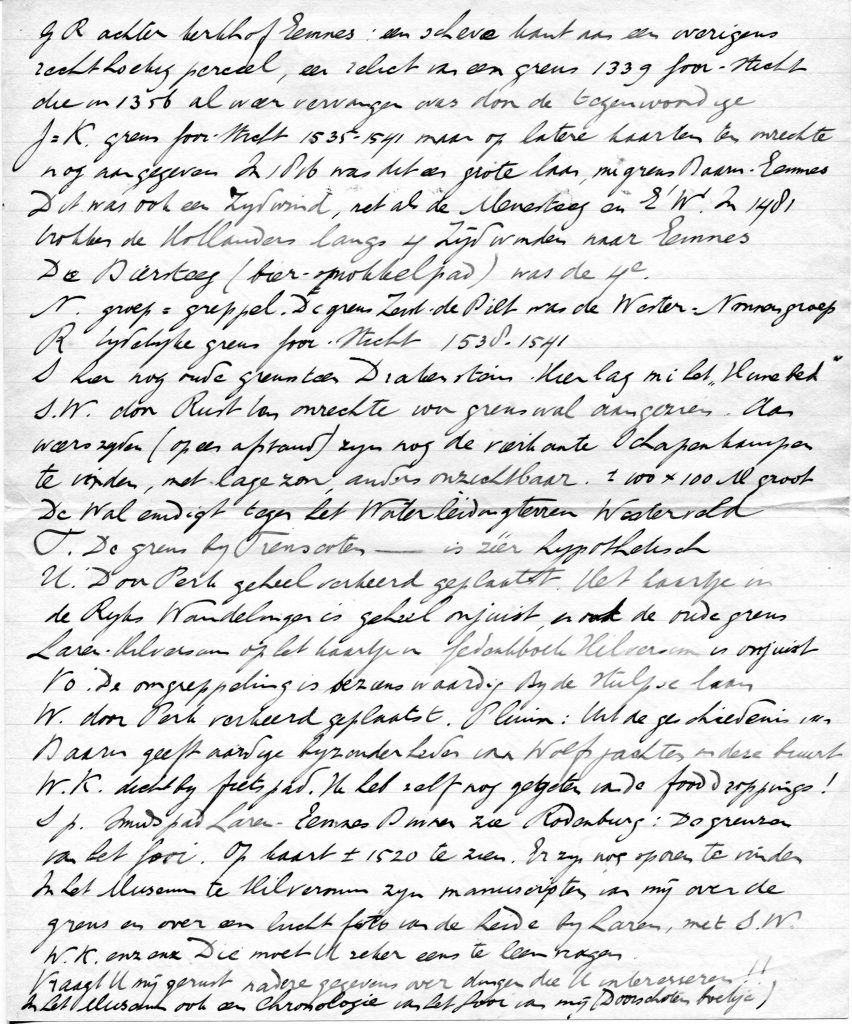 G R achter kerkhof Eemnes: een scheve kant aan een overigens
rechthoekig perceel, een relict van een grens 1339 Gooi-Sticht
die in 1356 al weer vervangen was door de tegenwoordige
J=K. grens Gooi-Sticht 1535-1541 maar op latere kaarten ten onrechte
nog aangegeven In 1816 was dit een grote laan, m grens Baarn-Eemnes
Dit was ook een Zydwind, net als de Meresteeg en E W. In 1481
trokken de Hollanders langs 4 Zydwinden naar Eemnes
De Biersteeg (bier-smokkelpad) was de 4e.
N. groep = greppel. De grens Zeist-de Bilt was de Wester=Nonnengroep
R tydelyke grens Gooi-Sticht 1538-1541
S hier nog oude grenssteen Drakenstein. Hier lag m i het „Hunebed"
S.W. door Rust ten onrechte voor grenswal aangezien. Aan
weerszyden (op een afstand) zyn nog de vierkante Schapenkampen
te vinden, met lage zon, anders onzichtbaar. ± 100 x 100 M groot
De Wal eindigt tegen het Waterleidingterrein Westerveld
T. De grens by — is zéér hypothetisch
U. Door Perk geheel verkeerd geplaatst. Het kaartje in
de Ryks Wandelingen is geheel onjuist, en ook de oude grens
Laren-Hilversum op het kaartje in Gedenkboek Hilversum is onjuist
Vo. De omgreppeling is bezienswaardig By de Hulpse laan
W. door Perk verkeerd geplaatst. Pluim: Uit de geschiedenis van
Baarn geeft aardige byzonderheden van Wolfsjachten in deze buurt
W.K. dicht by fietspad. Ik heb zelf nog gegeten van de fooddroppings!
S p. Smidspad Laren-Eemnes Binnen zie Rodenburg: De grenzen
van het Gooi. Op kaart ± 1520 te zien. Er zyn nog sporen te vinden
In het Museum te Hilversum zyn manuscripten van mij over de
grens en over een lucht foto van de heide by Laren, met S.W.
W.K. enz enz Die moet U zeker eens te leen vragen.
Vraagt U mij gerust nadere gegevens over dingen die U interesseren!!
In het Museum ook een Chronologie van het Gooi van mij (Doorschoten boekje)